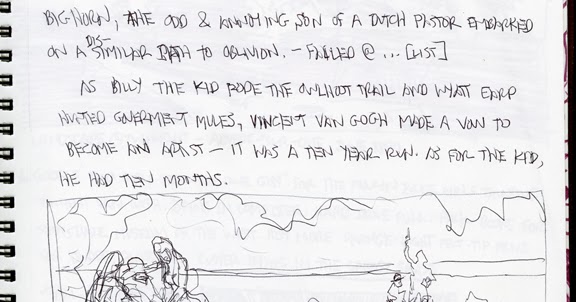 BIG-HORN, THE ODD & ANNOYING SON OF A DUTCH PASTOR EMBARKED
ON A DIS-SIMILAR PATH TO OBLIVION. - FAILED @ ... [LIST]
AS BILLY THE KID RODE THE OWLHOOT TRAIL AND WYATT EARP
HUNTED GOVERMENT MULES, VINCENT VAN GOGH MADE A VOW TO
BECOME AN ARTIST - IT WAS A TEN YEAR RUN. AS FOR THE KID,
HE HAD TEN MONTHS.